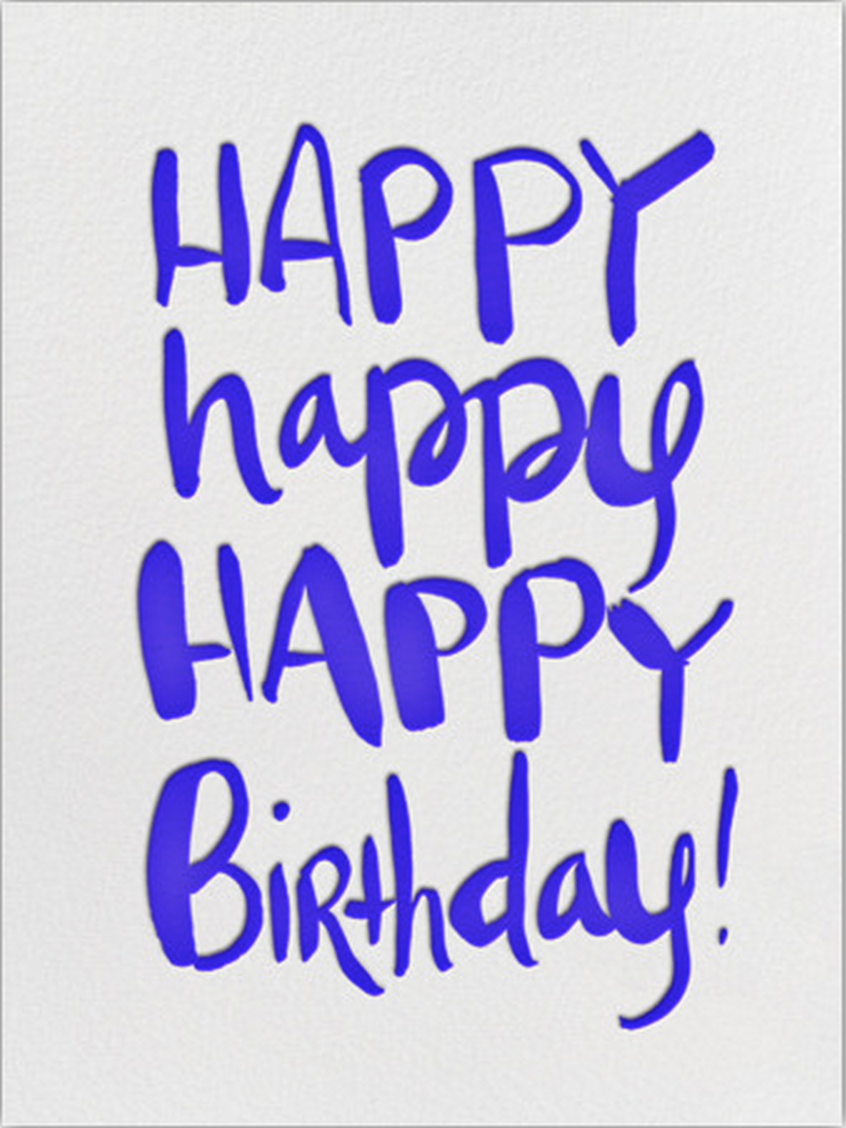 HAPPY
happy
HAPPY
BiRthday!